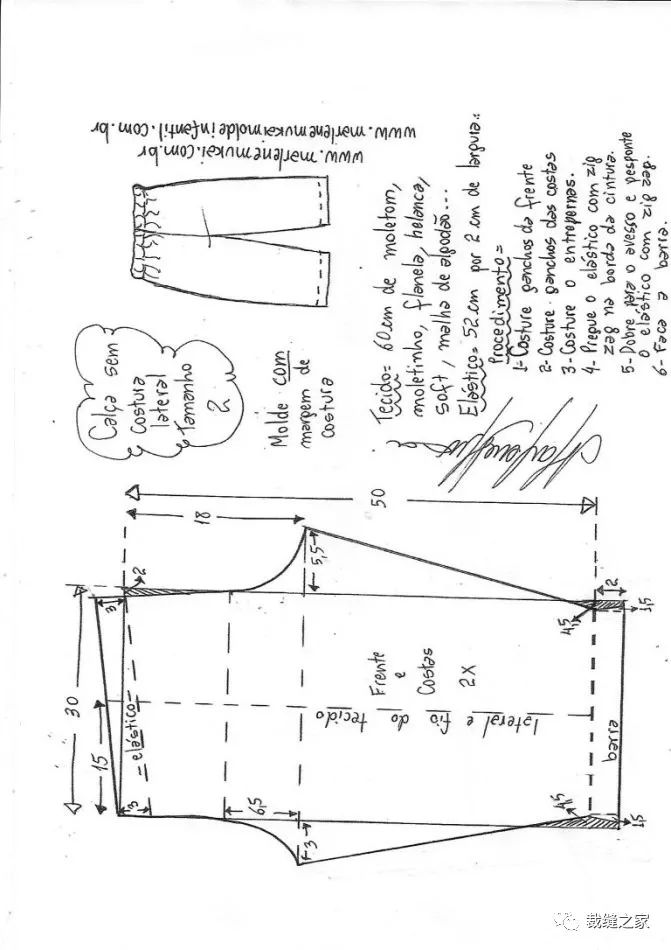 www.marlenemukai.com.br
www.marlenemukaimoldeinfantil.com.br
Calça sem
Costura
lateral
Tamanho
2
Molde com
margem de
costura
Tecido= 60cm de moletom,
moletinho, flanela, helanca,
soft, malha de algodão...
Elástico= 52cm por 2cm de largura.
Procedimento=
1- Costure ganchos da frente
2- Costure ganchos das costas
3- Costure o entrepernas.
4- Pregue o elástico com zig
zag na borda da cintura.
5- Dobre para o avesso e pesponte
o elástico com zig zag.
6- Faça a barra.
50
18
2
3
5,5
2
4,5
1,5
30
15
elástico
Frente
e
Costas
2X
lateral e fio do tecido
barra
3
6,5
3
4,5
1,5
裁缝之家